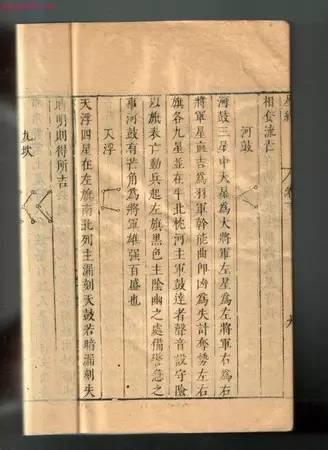 相套流亡
河鼓
河鼓三星中大星為大將軍左星為左將軍右為右
將軍星直吉為羽軍幹能曲即凶為失計奪勢左右
旗各九星並在牛北枕河主軍鼓達者聲音設守險
以旗表亡動兵起左旗黑色主陰幽之處備警急之
事河鼓有芒角為將軍雄强百盛也
天浮
天浮四星在左旗南北列主漏刻天鼓若暗漏刻失
明則得所吉
九坎